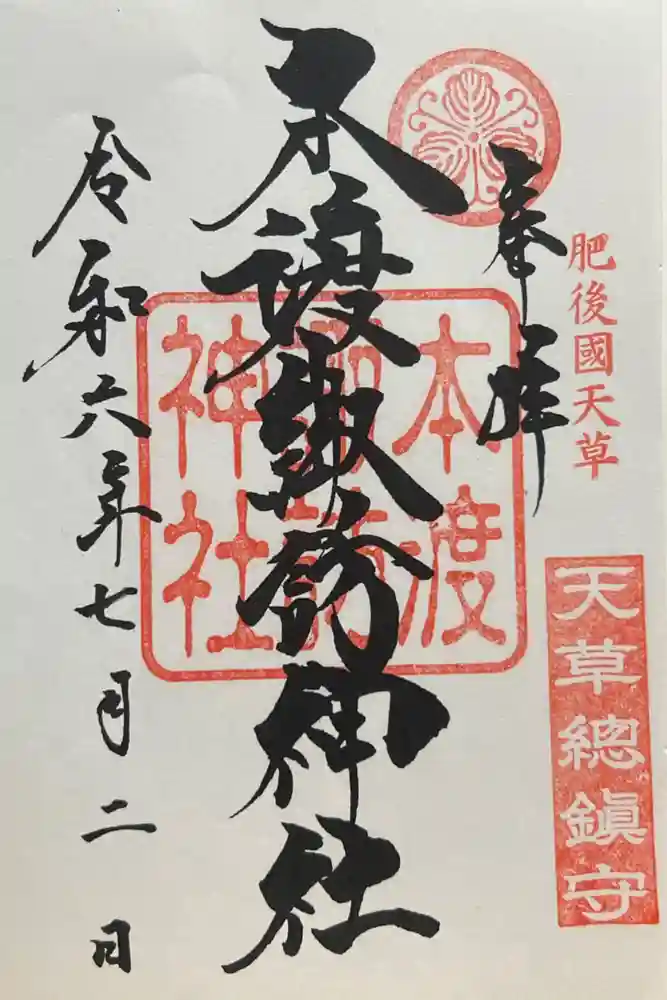 肥後國天草
天草總鎮守
奉拝
本渡諏訪神社
本渡
諏訪
神社
令和六年七月二日